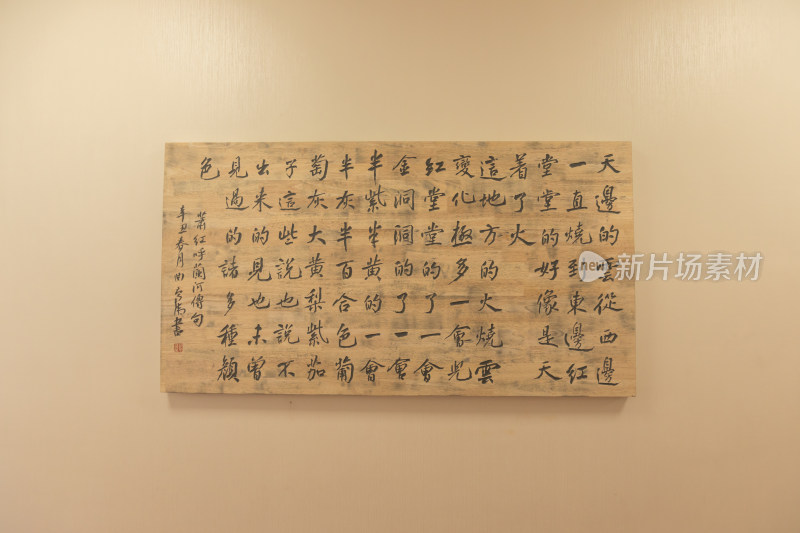 天邊的雲從西邊
一直燒到東邊紅
堂堂的好像是天
着了火
這地方的火燒雲
變化極多一會兒
紅堂堂的了一會
金洞洞的了一會
半紫半黄的一會
半灰半百合色葡
萄灰大黄梨紫茄
子這些説也説不
出来的見也未曾
見過的諸多種顏
色
蕭紅呼蘭河傳句
辛丑春月書
new 新片场素材